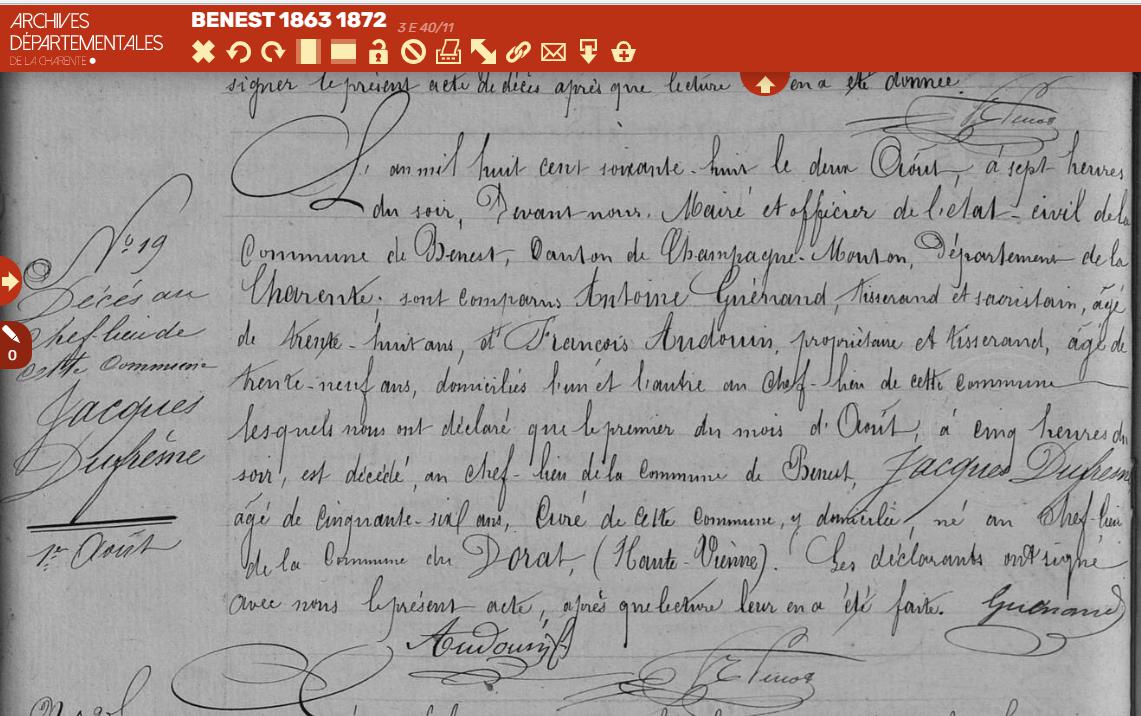 ARCHIVES
DÉPARTEMENTALES
DE LA CHARENTE
BENEST 1863 1872
3 E 40/11
0
signer le présent acte de décès après que lecture en a été donnée.
N° 19
Décés au
Chef-lieu de
cette Commune
Jacques
Dufrême
1er Août
L'an mil huit cent soixante-huit le deux Août, à sept heures
du soir, Devant nous, Maire et officier de l'état-civil de la
Commune de Benest, Canton de Champagne-Mouton, Département de la
Charente; sont comparus Antoine Guénand, tisserand et sacristain, âgé
de trente-huit ans, et François Audouin, propriétaire et tisserand, âgé de
trente-neuf ans, domiciliés l'un et l'autre au chef-lieu de cette commune
lesquels nous ont déclaré que le premier du mois d'Août, à cinq heures du
soir, est décédé, au chef-lieu de la Commune de Benest, Jacques
âgé de Cinquante-six ans, Curé de cette Commune, y domicilié, né au Chef-lieu
de la Commune du Dorat, (Haute-Vienne). Les déclarants ont signé
avec nous le présent acte, après que lecture leur en a été faite. Guénand
Audouin